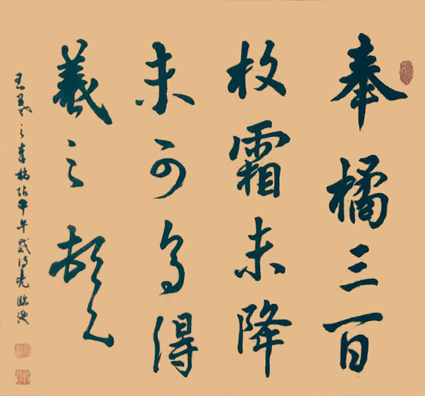 奉橘三百
枚霜未降
未可多得
羲之頓首
王羲之奉橘帖 午年